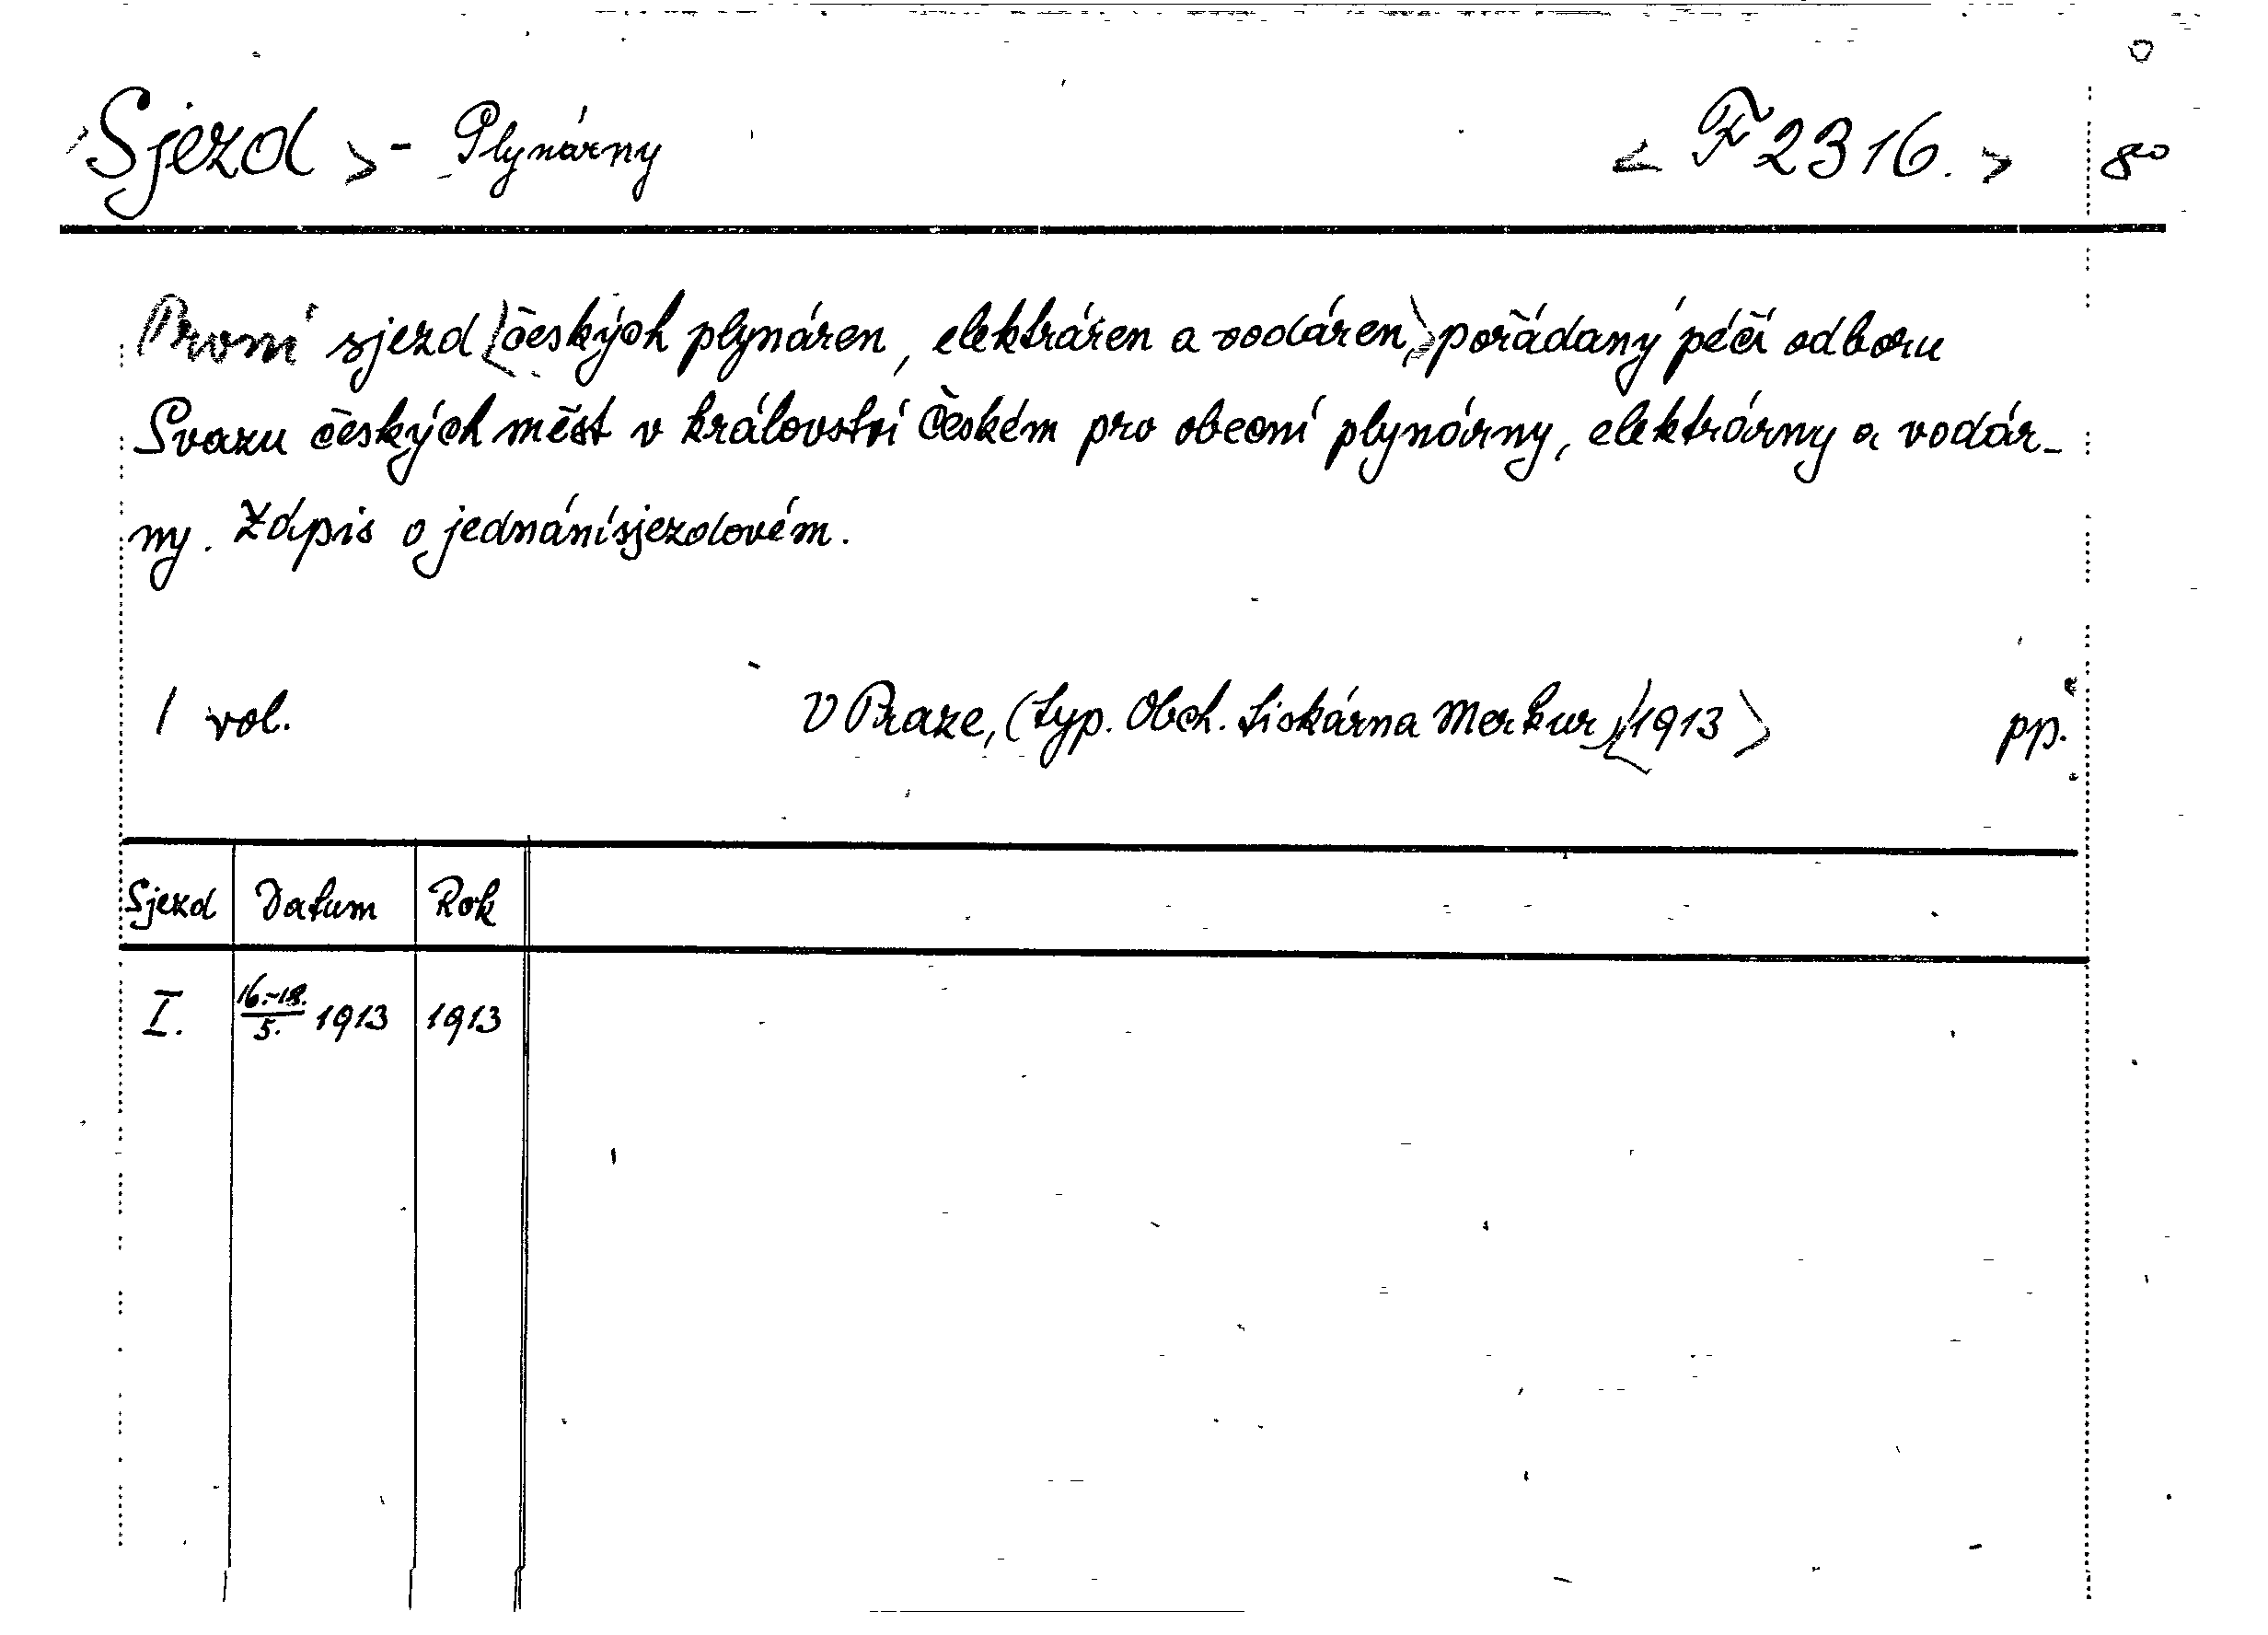 Sjezd > - Plynárny < F 2316. > 8°
První sjezd <českých plynáren, elektráren a vodáren,> pořádaný péčí odboru
Svazu českých měst v království Českém pro obecní plynárny, elektrárny a vodár-
ny. Zápis o jednání sjezdovém.
1 vol. V Praze, (typ. Obch. tiskárna Merkur) <1913> pp.
Sjezd Datum Rok
I. 16.-18./5. 1913 1913